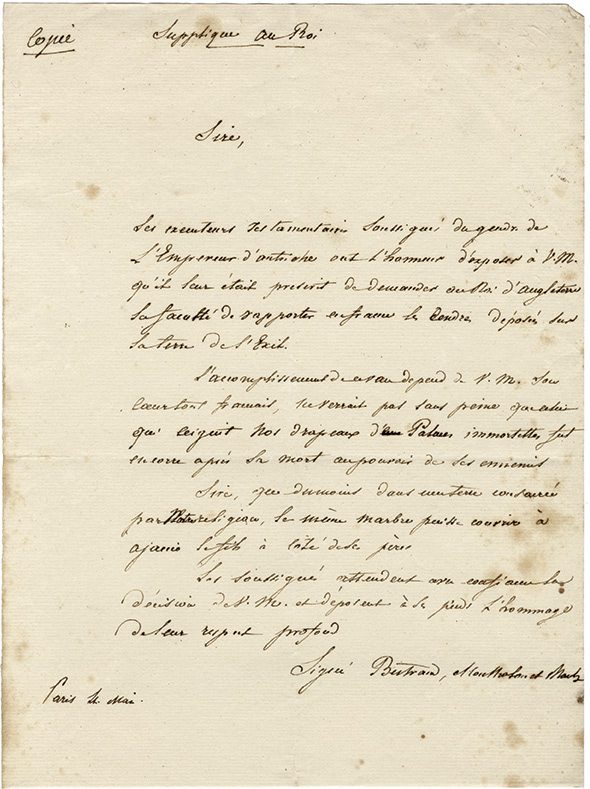 Copie
Supplique au Roi
Sire,
Les executeurs testamentaires soussignés du gendre de
L'Empereur d'autriche ont l'honneur d'exposer à V.M.
qu'il leur était prescrit de demander au Roi d'angleterre
la faculté de rapporter en france les Cendres déposées sur
la terre de l'Exil.
L'accomplissement de ce vœu depend de V.M. Son
cœur tout français, ne verrait pas sans peine que celui
qui ceignit nos drapeaux de Palmes immortelles fut
encore après sa mort au pouvoir de ses ennemis
Sire, que dumoins dans une terre consacrée
par Notre religion, le même marbre puisse couvrir à
ajacio le fils à côté de son père
Les soussignés attendent avec confiance la
décision de V.M. et déposent à ses pieds l'hommage
de leur respect profond
Signé Bertrand, Montholon et March
Paris Mai.